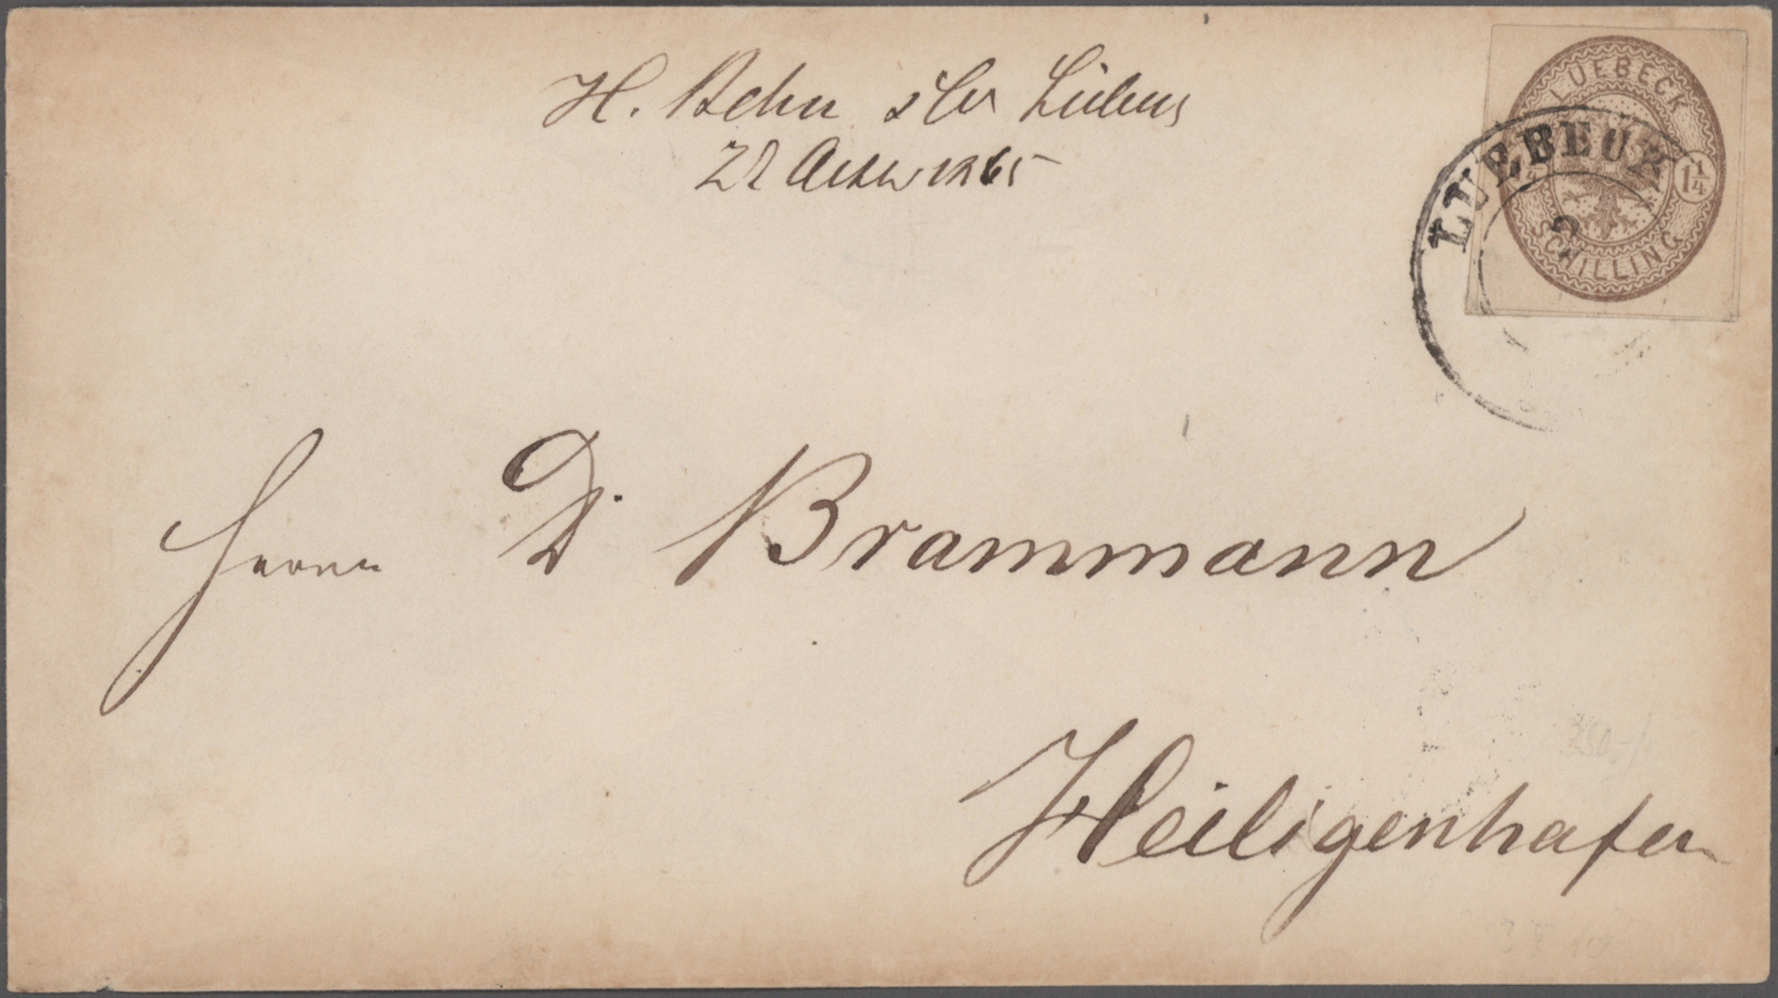 H. Behn
22 1865
LUEBECK
1¼
SCHILLING
LUEBECK
Herrn Dr Brammann
Heiligenhafen